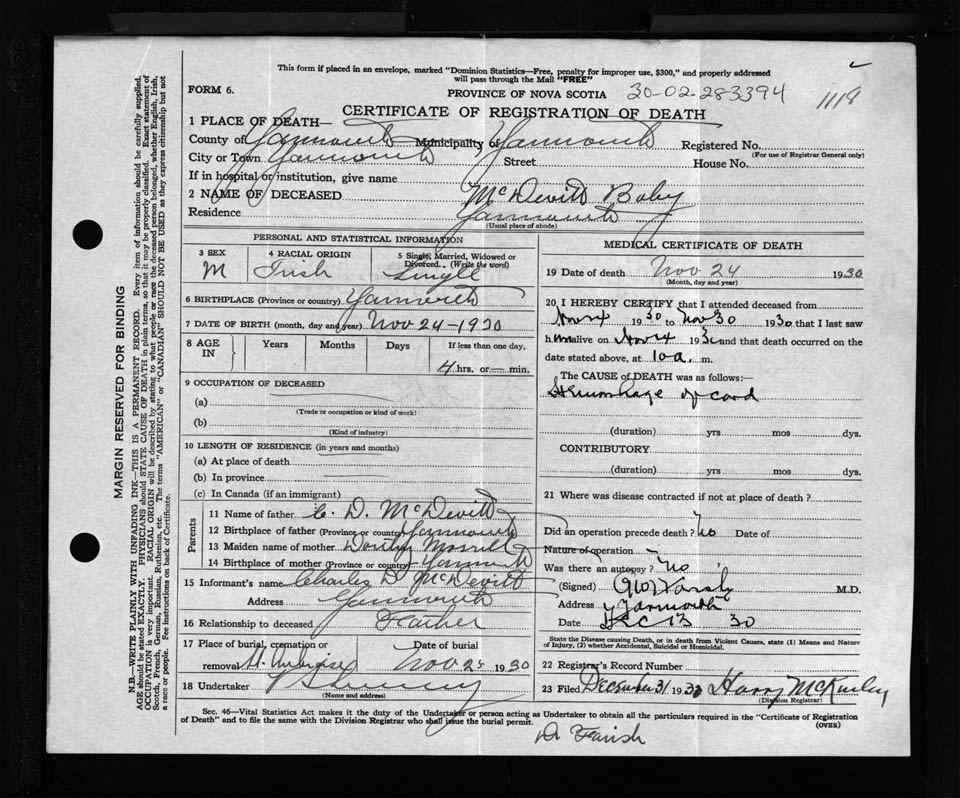 This form if placed in an envelope, marked "Dominion Statistics—Free, penalty for improper use, $300," and properly addressed
will pass through the Mail "FREE"
FORM 6.
PROVINCE OF NOVA SCOTIA
30-02-283394
1118
CERTIFICATE OF REGISTRATION OF DEATH
1 PLACE OF DEATH—
County of Yarmouth Municipality of Yarmouth Registered No.
(For use of Registrar General only)
City or Town Yarmouth Street House No.
If in hospital or institution, give name
2 NAME OF DECEASED McDevitt Baby
Residence Yarmouth
(Usual place of abode)
PERSONAL AND STATISTICAL INFORMATION
3 SEX
M
4 RACIAL ORIGIN
Irish
5 Single, Married, Widowed or
Divorced. (Write the word)
Single
6 BIRTHPLACE (Province or country) Yarmouth
7 DATE OF BIRTH (month, day and year) Nov 24-1930
8 AGE
IN
Years Months Days If less than one day,
4 hrs. or — min.
9 OCCUPATION OF DECEASED
(a)
(Trade or occupation or kind of work)
(b)
(Kind of industry)
10 LENGTH OF RESIDENCE (in years and months)
(a) At place of death
(b) In province
(c) In Canada (if an immigrant)
Parents
11 Name of father C. D. McDevitt
12 Birthplace of father (Province or country) Yarmouth
13 Maiden name of mother Dorothy Morrill
14 Birthplace of mother (Province or country) Yarmouth
15 Informant's name Charles D McDevitt
Address Yarmouth
16 Relationship to deceased Father
17 Place of burial, cremation or
removal St. Ambroise
Date of burial
Nov 25 1930
18 Undertaker
(Name and address)
MEDICAL CERTIFICATE OF DEATH
19 Date of death Nov 24 1930
(Month, day and year)
20 I HEREBY CERTIFY that I attended deceased from
1930 to Nov 30 1930 that I last saw
him alive on 193 and that death occurred on the
date stated above, at 10 a. m.
The CAUSE of DEATH was as follows:—
Hemorrhage of cord
(duration) yrs mos dys.
CONTRIBUTORY
(duration) yrs mos dys.
21 Where was disease contracted if not at place of death?
Did an operation precede death? No Date of
Nature of operation
Was there an autopsy? No
(Signed) M.D.
Address Yarmouth
Date Dec 13 30
State the Disease causing Death, or in death from Violent Causes, state (1) Means and Nature
of Injury, (2) whether Accidental, Suicidal or Homicidal.
22 Registrar's Record Number
23 Filed December 31 1930 Harry McKinley
(Division Registrar)
Sec. 46—Vital Statistics Act makes it the duty of the Undertaker or person acting as Undertaker to obtain all the particulars required in the "Certificate of Registration
of Death" and to file the same with the Division Registrar who shall issue the burial permit.
(OVER)
Dr Farish
MARGIN RESERVED FOR BINDING
N.B.—WRITE PLAINLY WITH UNFADING INK—THIS IS A PERMANENT RECORD. Every item of information should be carefully supplied.
AGE should be stated EXACTLY. PHYSICIANS should STATE CAUSE OF DEATH in plain terms, so that it may be properly classified. Exact statement of
OCCUPATION is very important. RACIAL ORIGIN will be described by stating to what people or race the deceased person belonged, whether English, Irish,
Scotch, French, German, Russian, Ruthenian, etc. The terms "AMERICAN" or "CANADIAN" SHOULD NOT BE USED as they express citizenship but not
a race or people. See instructions on back of Certificate.